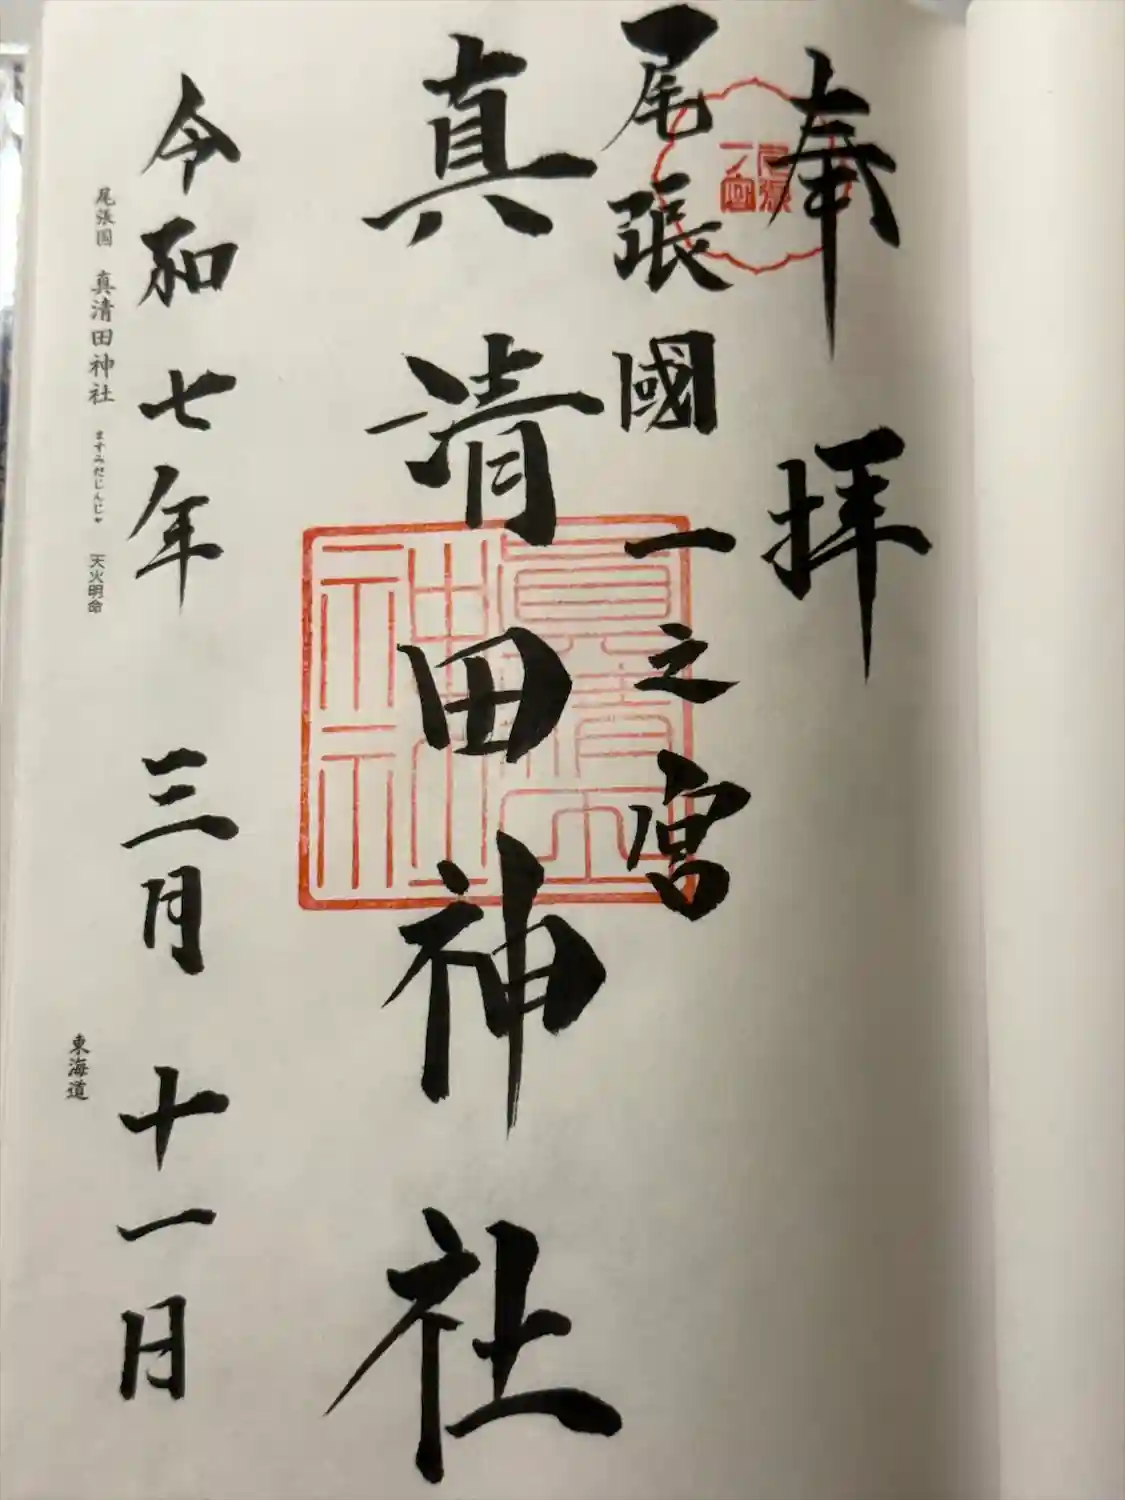 奉拝
尾張國一之宮
尾張
一宮
真清田神社
真清田
神社
令和七年 三月 十一日
尾張国 真清田神社 ますみだじんじゃ 天火明命
東海道